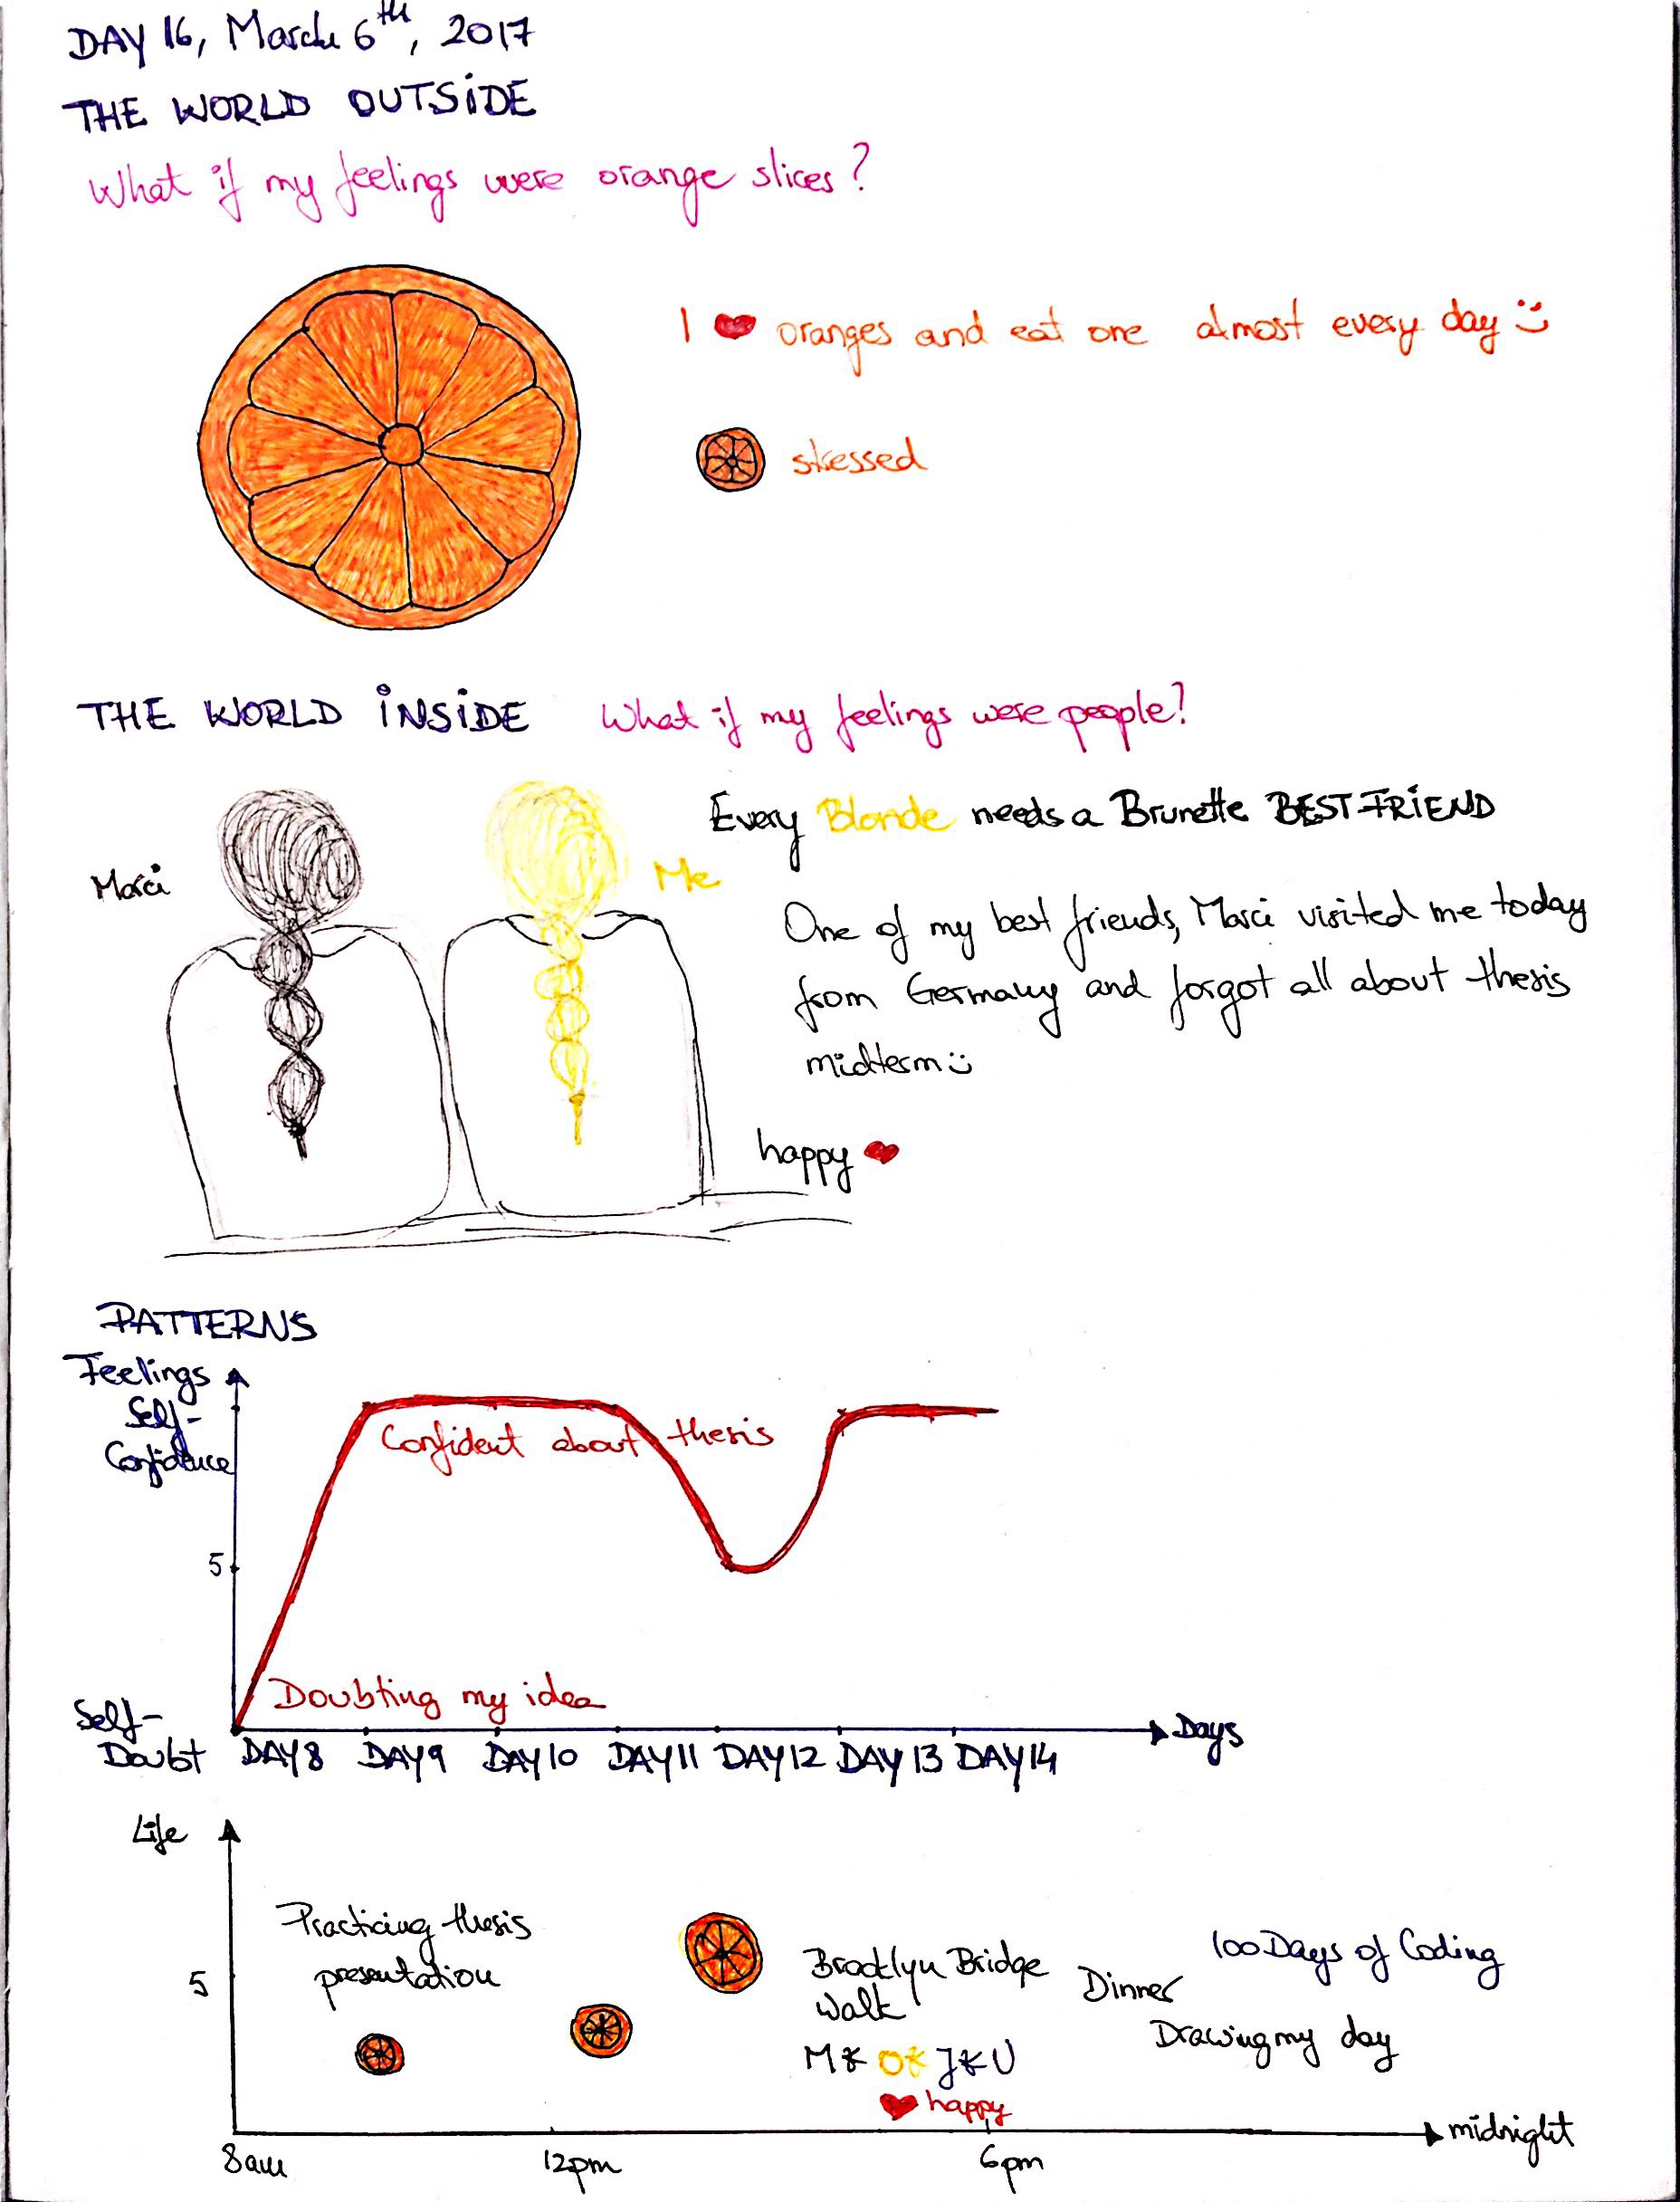 DAY 16, March 6th, 2017
THE WORLD OUTSIDE
What if my feelings were orange slices?
I ❤ oranges and eat one almost every day :)
stressed
THE WORLD INSIDE What if my feelings were people?
Every Blonde needs a Brunette BEST FRIEND
Marci
Me
One of my best friends, Marci visited me today
from Germany and forgot all about thesis
midterm :)
happy ❤
PATTERNS
Feelings
Self-
Confidence
Confident about thesis
5
Doubting my idea
Self-
Doubt
DAY 8 DAY 9 DAY 10 DAY 11 DAY 12 DAY 13 DAY 14
Days
Life
Practicing thesis
presentation
5
Brooklyn Bridge
Walk
M* O* J* U
❤ happy
Dinner
100 Days of Coding
Drawing my day
8am 12pm 6pm
midnight